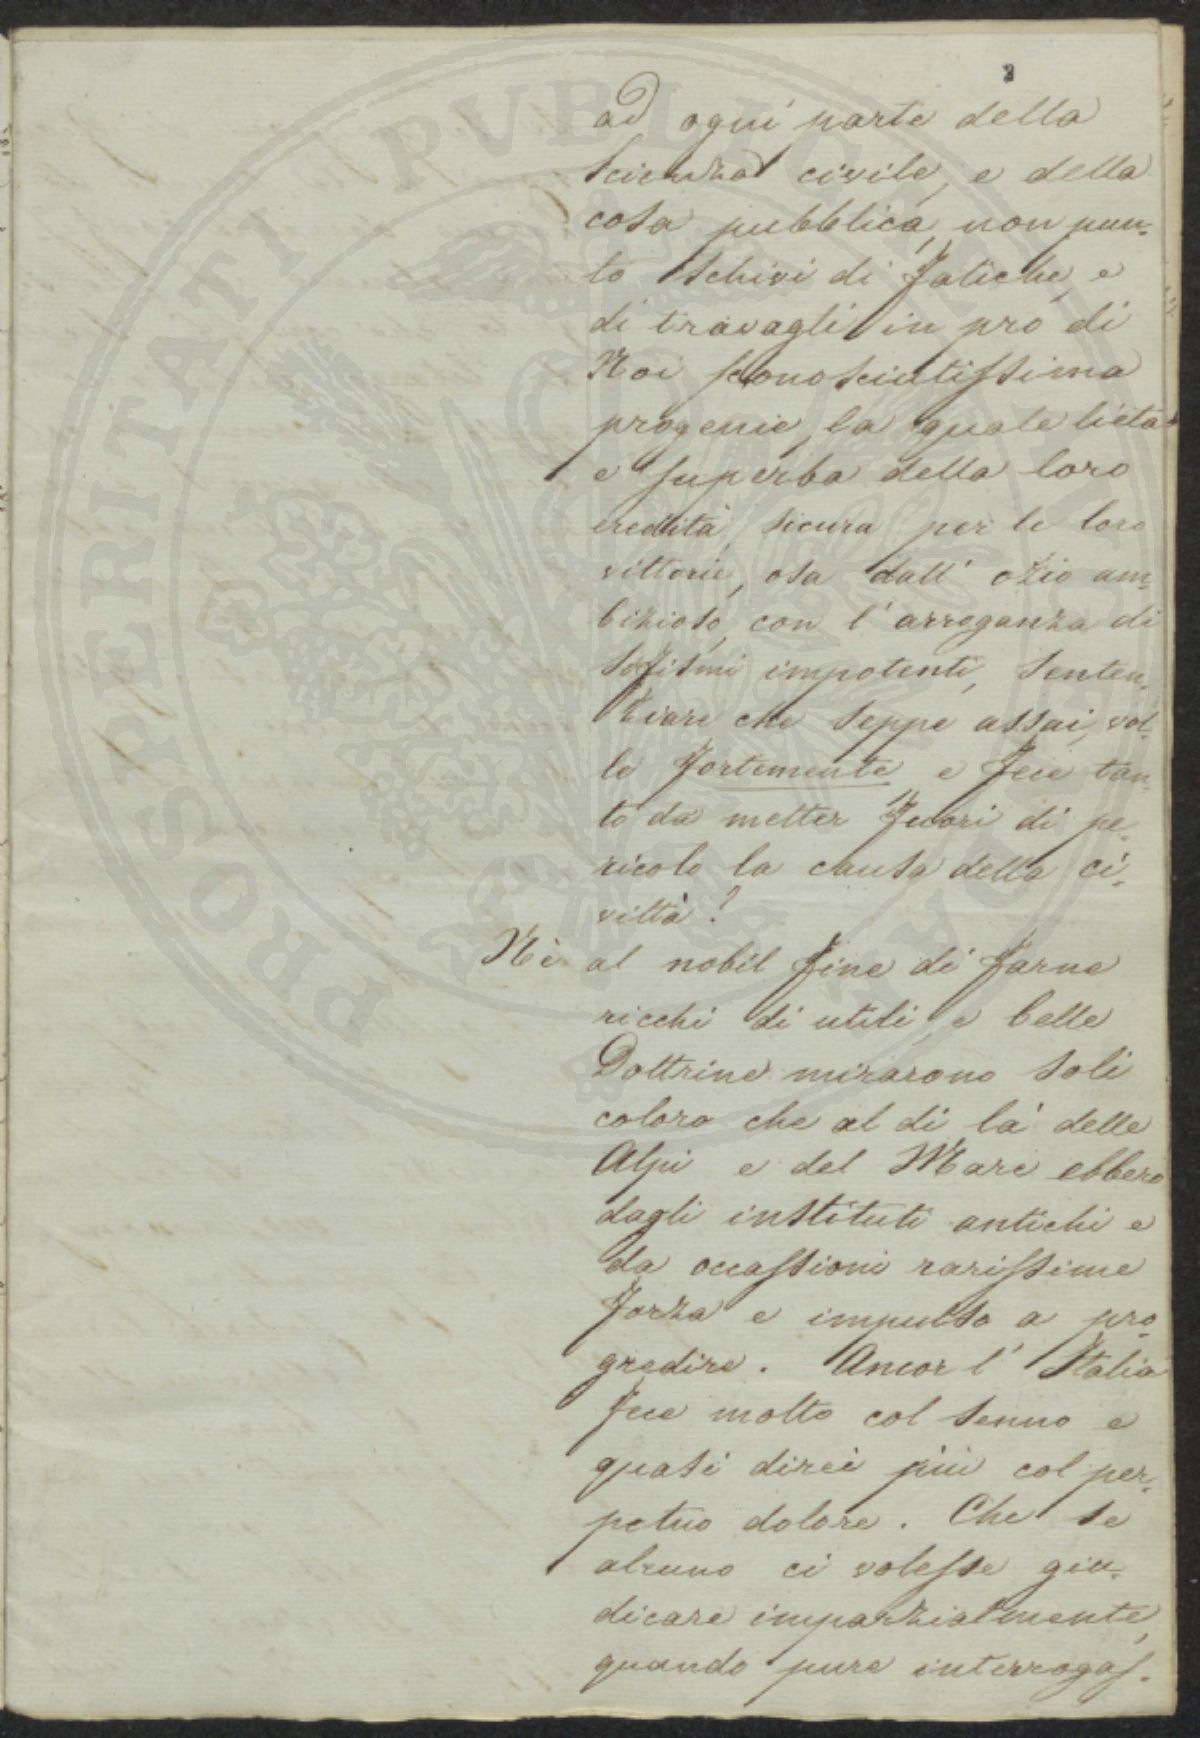 3
ad ogni parte della
scienza civile, e della
cosa pubblica, non pun-
to schivi di fatiche, e
di travagli in pro di
Noi sconosciutissima
progenie, la quale lieta
e superba della loro
eredità, sicura per le loro
vittorie, osa dall' ozio am-
bizioso, con l' arroganza di
sofismi impotenti, senten-
ziare che seppe assai, vol-
le fortemente e fece tan-
to da metter fuori di pe-
ricolo la causa della ci-
viltà?
Nè al nobil fine di farne
ricchi di utili, e belle
Dottrine mirarono soli
coloro che al di là delle
Alpi e del Mare ebbero
dagli instituti antichi e
da occassioni rarissime
forza e impulso a pro-
gredire. Ancor l' Italia
fece molto col senno e
quasi direi più col per-
petuo dolore. Che se
alcuno ci volesse giu-
dicare imparzialmente,
quando pure interrogas-
PROSPERITATI PVBLICAE